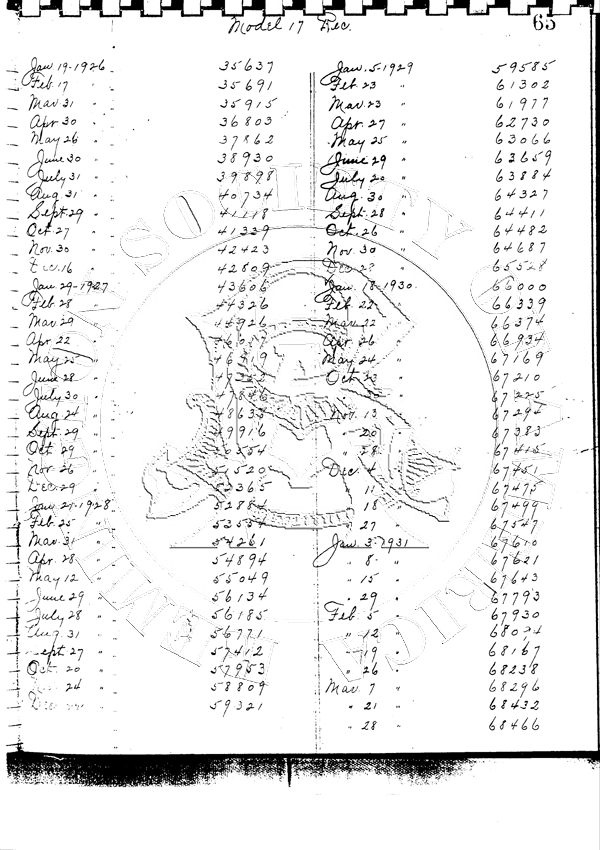 Model 17 Rec. 65
Jan 19-1926 35637
Feb. 17 " 35691
Mar. 31 " 35915
Apr. 30 " 36803
May 26 " 37862
June 30 " 38930
July 31 " 39898
Aug 31 " 40734
Sept. 29 " 41118
Oct. 27 " 41339
Nov. 30 " 42423
Dec. 16 " 42809
Jan. 29-1927 43606
Feb. 28 " 44326
Mar. 29 " 44926
Apr. 22 "
May 25 "
June 28 "
July 30 " 47846
Aug 24 " 48633
Sept. 29 " 49916
Oct. 29 " 50354
Nov. 26 " 51520
Dec. 29 " 52365
Jan. 27-1928 52884
Feb. 25 " 53554
Mar. 31 " 54261
Apr. 28 " 54894
May 12 " 55049
June 29 " 56134
July 28 " 56185
Aug. 31 " 56771
Sept. 27 " 57412
Oct. 20 " 57953
24 " 58809
Dec. 59321
Jan. 5-1929 59585
Feb 23 " 61302
Mar. 23 " 61977
Apr. 27 " 62730
May 25 " 63066
June 29 " 63659
July 20 " 63884
Aug. 30 " 64327
Sept. 28 " 64411
Oct. 26 " 64482
Nov. 30 " 64687
Dec. " 65528
Jan. 18-1930 66000
Feb 22 " 66339
Mar. 22 " 66374
Apr. 26 " 66934
May 24 " 67169
Oct. 23 " 67210
67225
Nov. 13 " 67294
" 20 " 67383
" 28 " 67415
Dec. 4 " 67451
" 11 " 67475
" 18 " 67499
" 27 " 67547
Jan. 3-1931 67610
" 8 " 67621
" 15 " 67643
" 29 " 67793
Feb. 5 " 67930
" 12 "
" 19 " 68167
" 26 " 68238
Mar. 7 " 68296
" 21 " 68432
" 28 " 68466